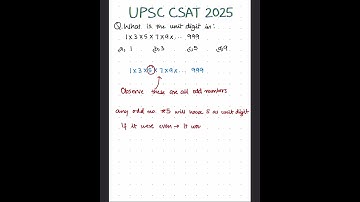 UPSC CSAT 2025
Q. What is the unit digit in:
1x3x5x7x9x... 999
a, 1 b, 3 c, 5 d, 9
1x3x5x7x9x... 999
Observe these are all odd numbers
any odd no. x5 will have 5 as unit digit
If it were even → It wo